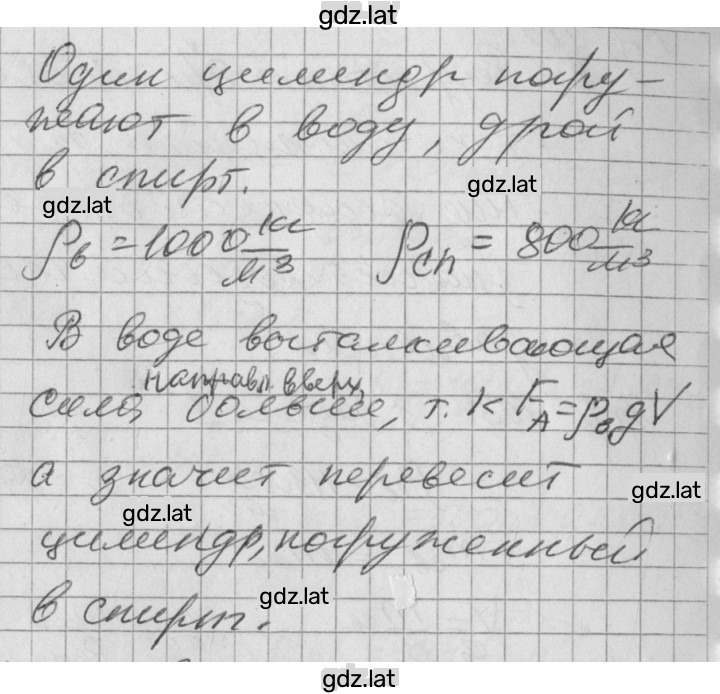 gdz.lat
Один цилиндр погру-
жают в воду, другой
в спирт.
gdz.lat
gdz.lat
ρв = 1000 кг/м³ ρсп = 800 кг/м³
В воде выталкивающая
направл. вверх,
сила, больше, т. к FA = ρв gV
а значит перевесит
gdz.lat
gdz.lat
цилиндр, погруженный
gdz.lat
в спирт.
gdz.lat